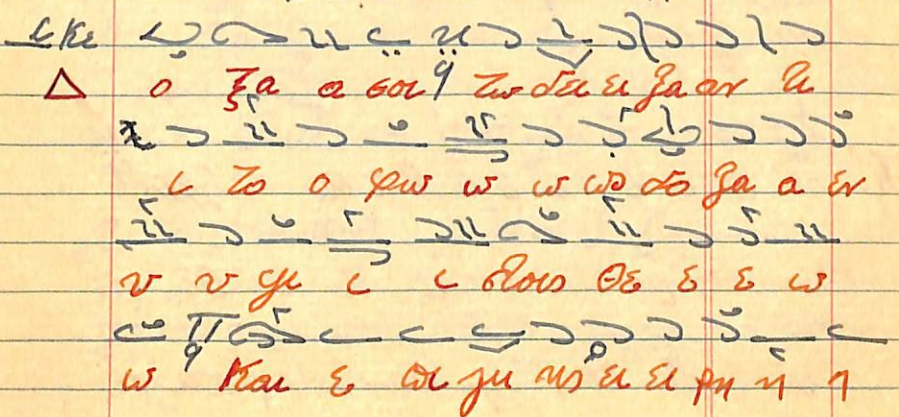 Δ ο ξα α σοι τω δει ει ξα αν τι
ι το ο φω ω ω ως δο ξα α εν
υ υ ψι ι ι στοις Θε ε ε ω
ω Και ε πι γη ης ει ει ρη η η